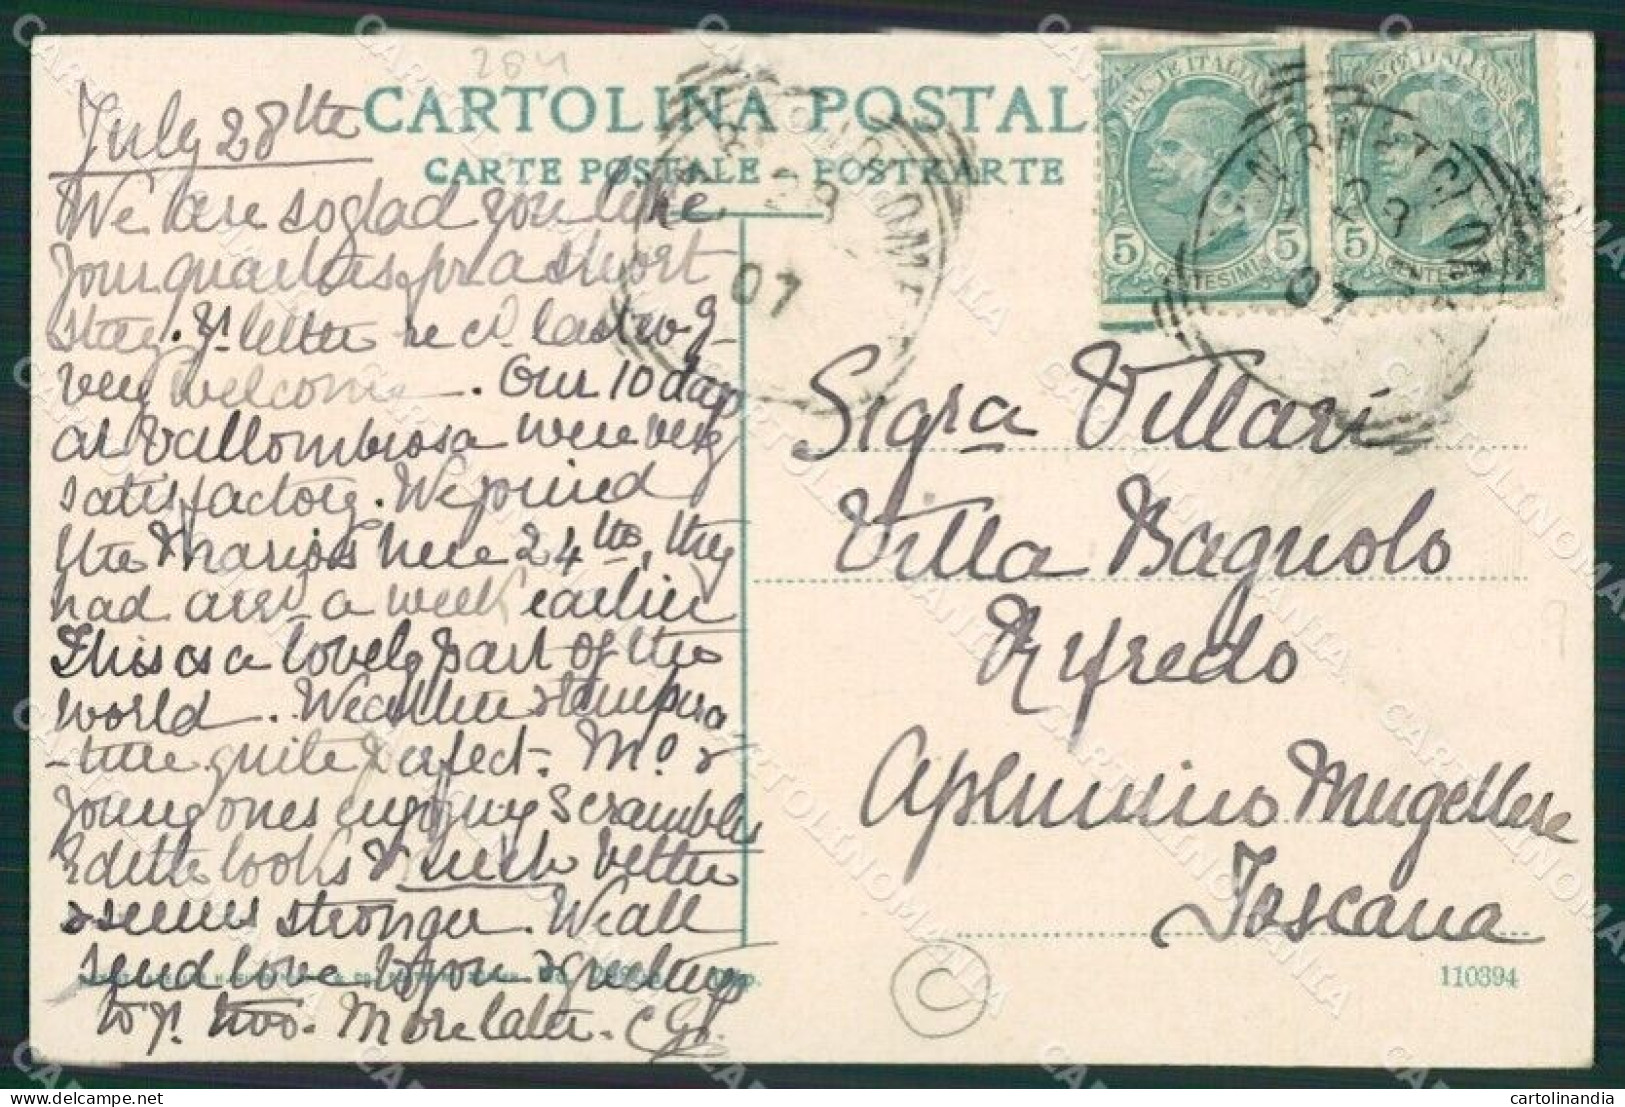 284
CARTOLINA POSTAL
CARTE POSTALE - POSTKARTE
July 28th
We are so glad you like
your quarters for a short
stay. Yr letter recd. last evg
very welcome. Our 10 days
at Vallombrosa were very
satisfactory. We joined
the here 24th, they
had arrd a week earlier
This is a lovely part of the
world. Weather & tempera
-ture quite perfect. M. &
young ones enjoying scrambles
Edith looks much better
& seems stronger. We all
send love to you & greetings
to yr. More later.
Sigra Villari
Villa Bagnolo
Rifredo
Apennino Mugellese
Toscana
POSTE ITALIANE
5 CENTESIMI 5
POSTE ITALIANE
5 CENTESIMI
07
110394
©
CARTOLINOMANIA
cartolinandia